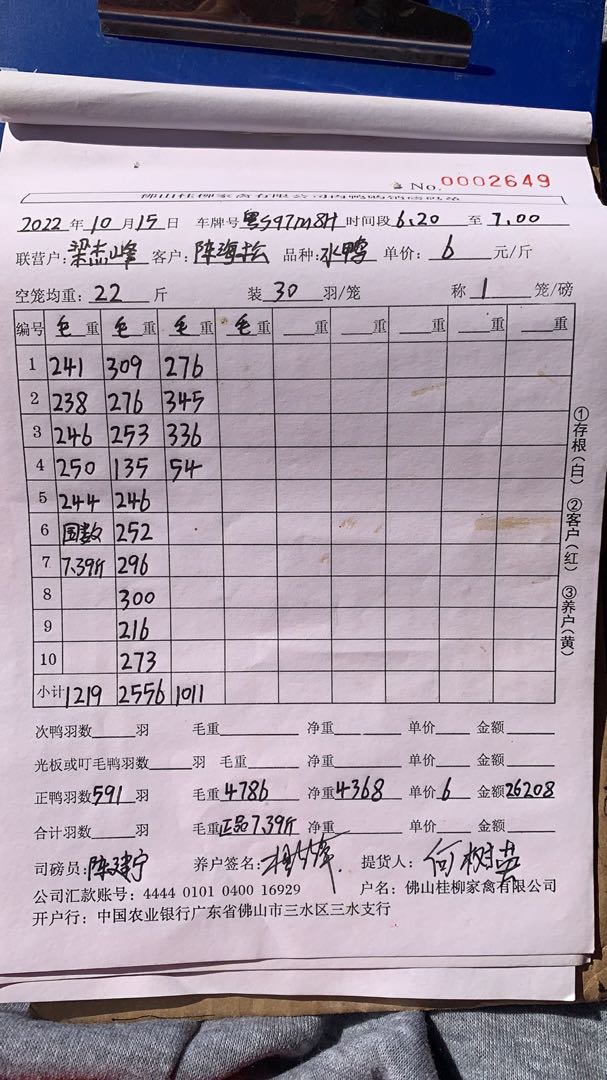 佛山桂柳家禽有限公司肉鸭购销磅码单
No. 0002649
2022年10月15日 车牌号粤S97M8H 时间段6.20至7.00
联营户:梁志峰 客户:陈海松 品种:水鸭 单价:6元/斤
空笼均重:22斤 装30羽/笼 称1笼/磅
编号 毛重 毛重 毛重 毛重 重 重 重 重
1 241 309 276
2 238 276 345
3 246 253 336
4 250 135 54
5 244 246
6 国数 252
7 7.39斤 296
8 300
9 216
10 273
小计 1219 2556 1011
次鸭羽数 羽 毛重 净重 单价 金额
光板或叮毛鸭羽数 羽 毛重 净重 单价 金额
正鸭羽数591羽 毛重4786 净重4368 单价6 金额26208
合计羽数 羽 毛重正品7.39斤 净重 单价 金额
司磅员:陈建宁 养户签名: 提货人:何树英
公司汇款账号:4444 0101 0400 16929 户名:佛山桂柳家禽有限公司
开户行:中国农业银行广东省佛山市三水区三水支行
①存根(白) ②客户(红) ③养户(黄)